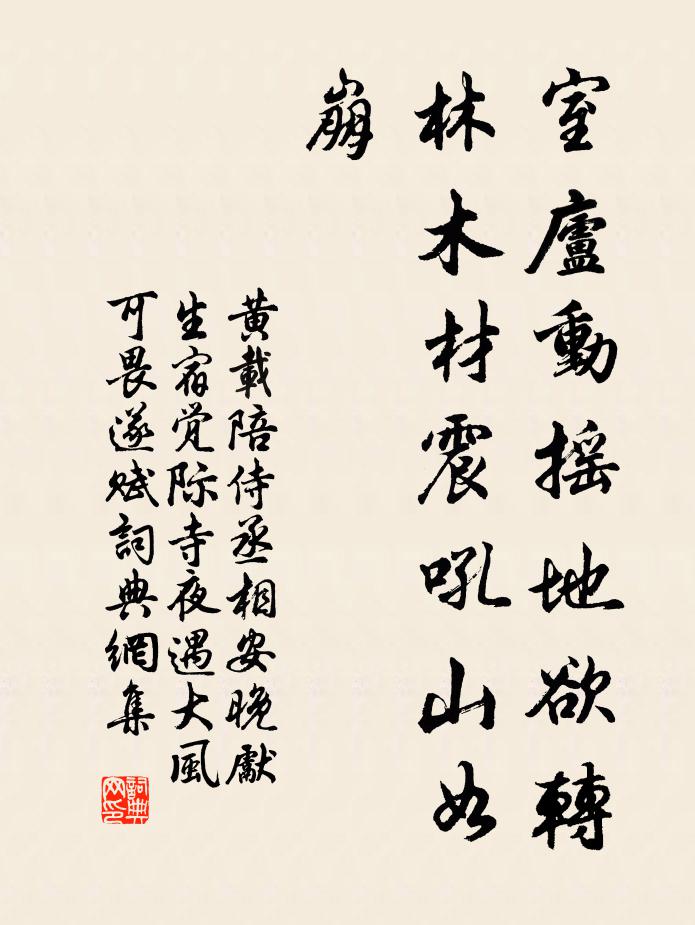 室廬動摇地欲轉
林木材震吼山如
崩
黄載陪侍丞相安晚獻
生宿觉际寺夜遇大風
可畏遂赋詞典網集
詞典
网印